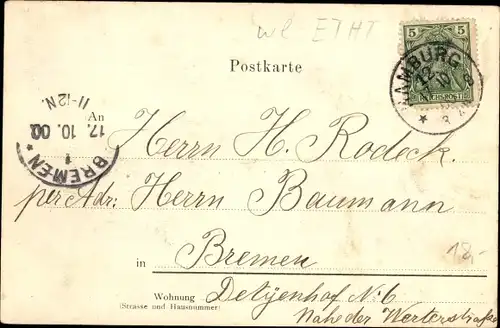 Postkarte
5 5
HAMBURG
An
Herrn H. Rodeck.
per Adr: Herrn Baumann
in Bremen
18,-
Wohnung
(Strasse und Hausnummer)
Detjenhof No 6
Nähe der Werterstraße
BREMEN
1
17. 10. 00
11-12N.